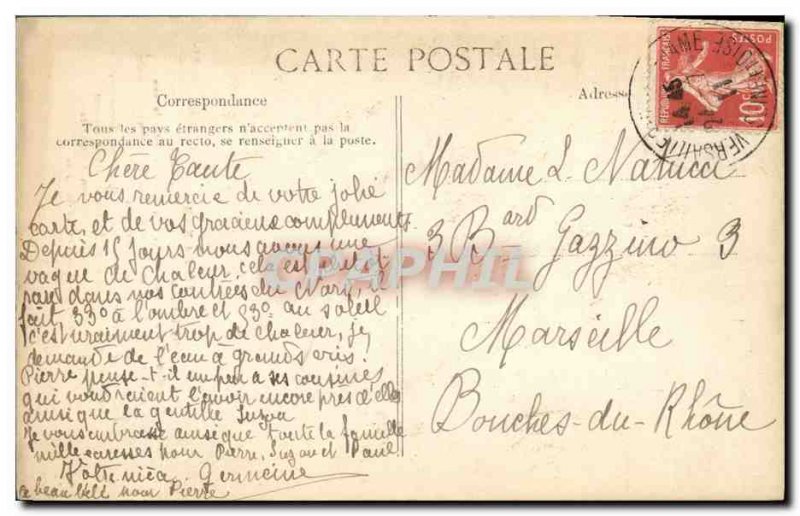 CARTE POSTALE
Correspondance
Tous les pays étrangers n'acceptent pas la
correspondance au recto, se renseigner à la poste.
Chère Tante
Je vous remercie de votre jolie
carte, et de vos gracieux compliments
Depuis 15 jours nous avons une
vague de chaleur, cela est
rare dans nos contrées du Nord, 
fait 33° à l'ombre et 53° au soleil
c'est vraiment trop de chaleur, je
demande de l'eau a grands cris.
Pierre pense-t-il un peu a ses cousines
qui voudraient l'avoir encore près d'elles
ainsi que la gentille Suzon
Je vous embrasse ainsi que toute la famille
mille caresses pour Pierre, Suzon et Paul
Votre nièce Germaine
pour Pierre
Adresse
Madame L. Natucci
3 Bard Gazzino 3
Marseille
Bouches-du-Rhône
POSTES
REPUBLIQUE FRANÇAISE
10c
VERSAILLES
SEINE-ET-OISE
CPAPHIL